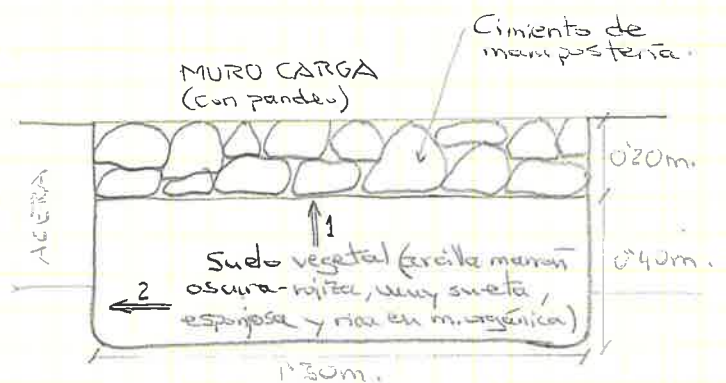 Cimiento de
mampostería.
MURO CARGA
(con pandeo)
0'20m.
ACERA
1
Suelo vegetal (arcilla marrón
oscura-rojiza, muy suelta,
esponjosa y rica en m. orgánica)
2
0'40m.
1'30m.